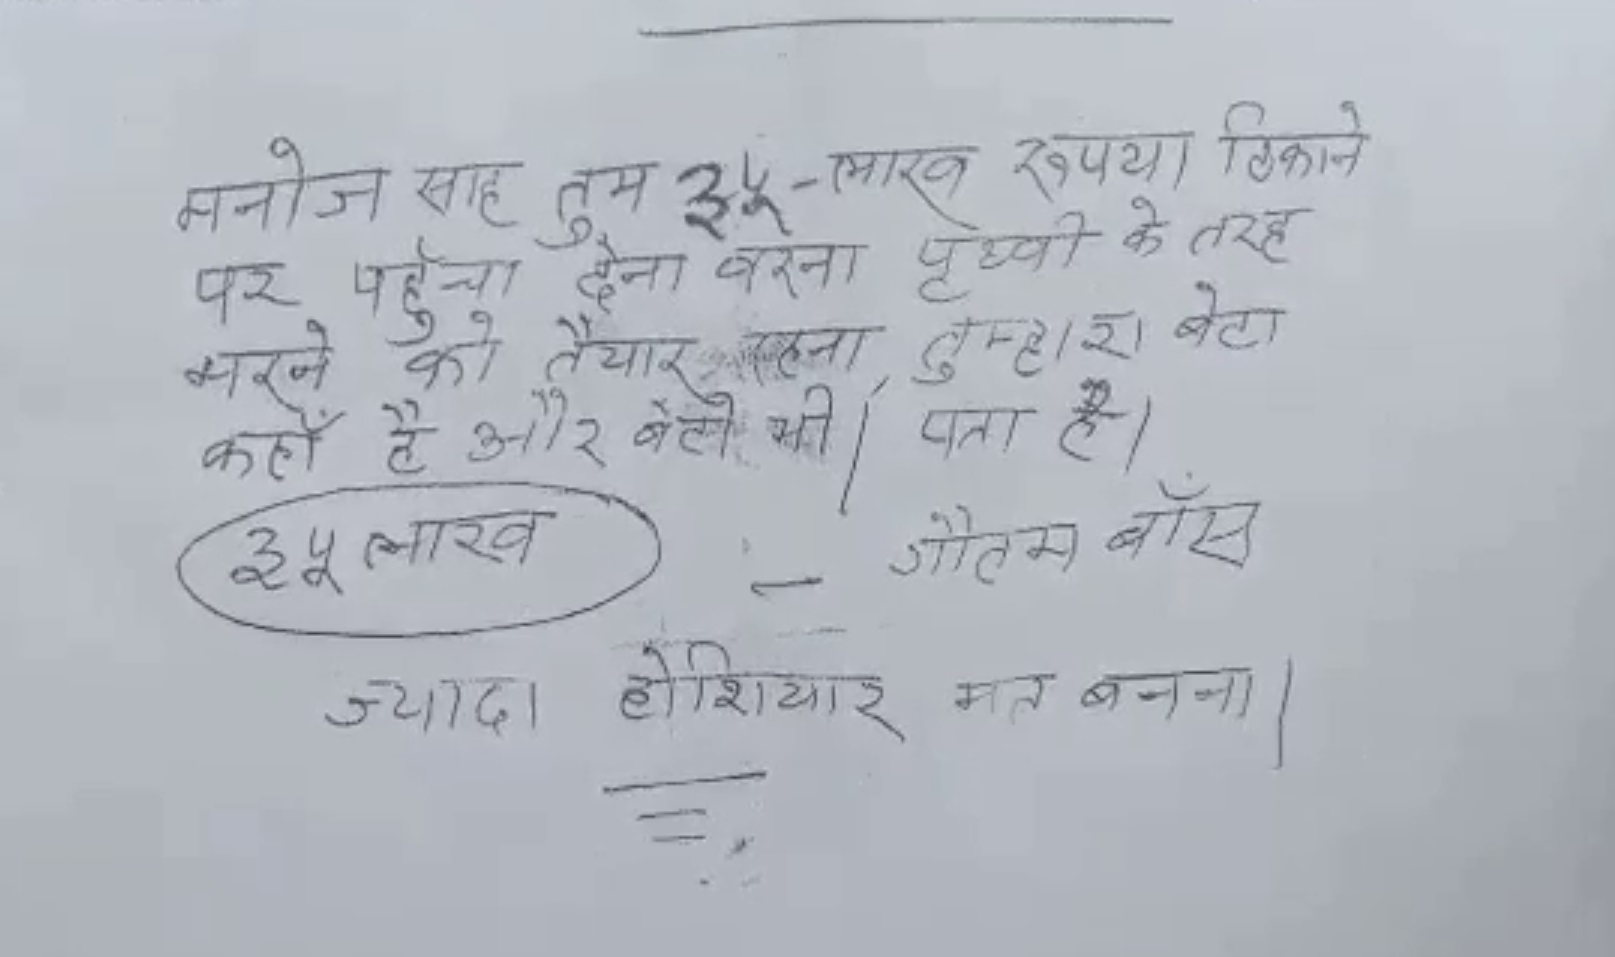 मनोज साह तुम ३५-लाख रुपया ठिकाने
पर पहुँचा देना वरना पृथ्वी के तरह
मरने को तैयार रहना तुम्हारा बेटा
कहाँ है और बेटी भी। पता है।
३५ लाख
– गौतम बाँस
ज्यादा होशियार मत बनना।